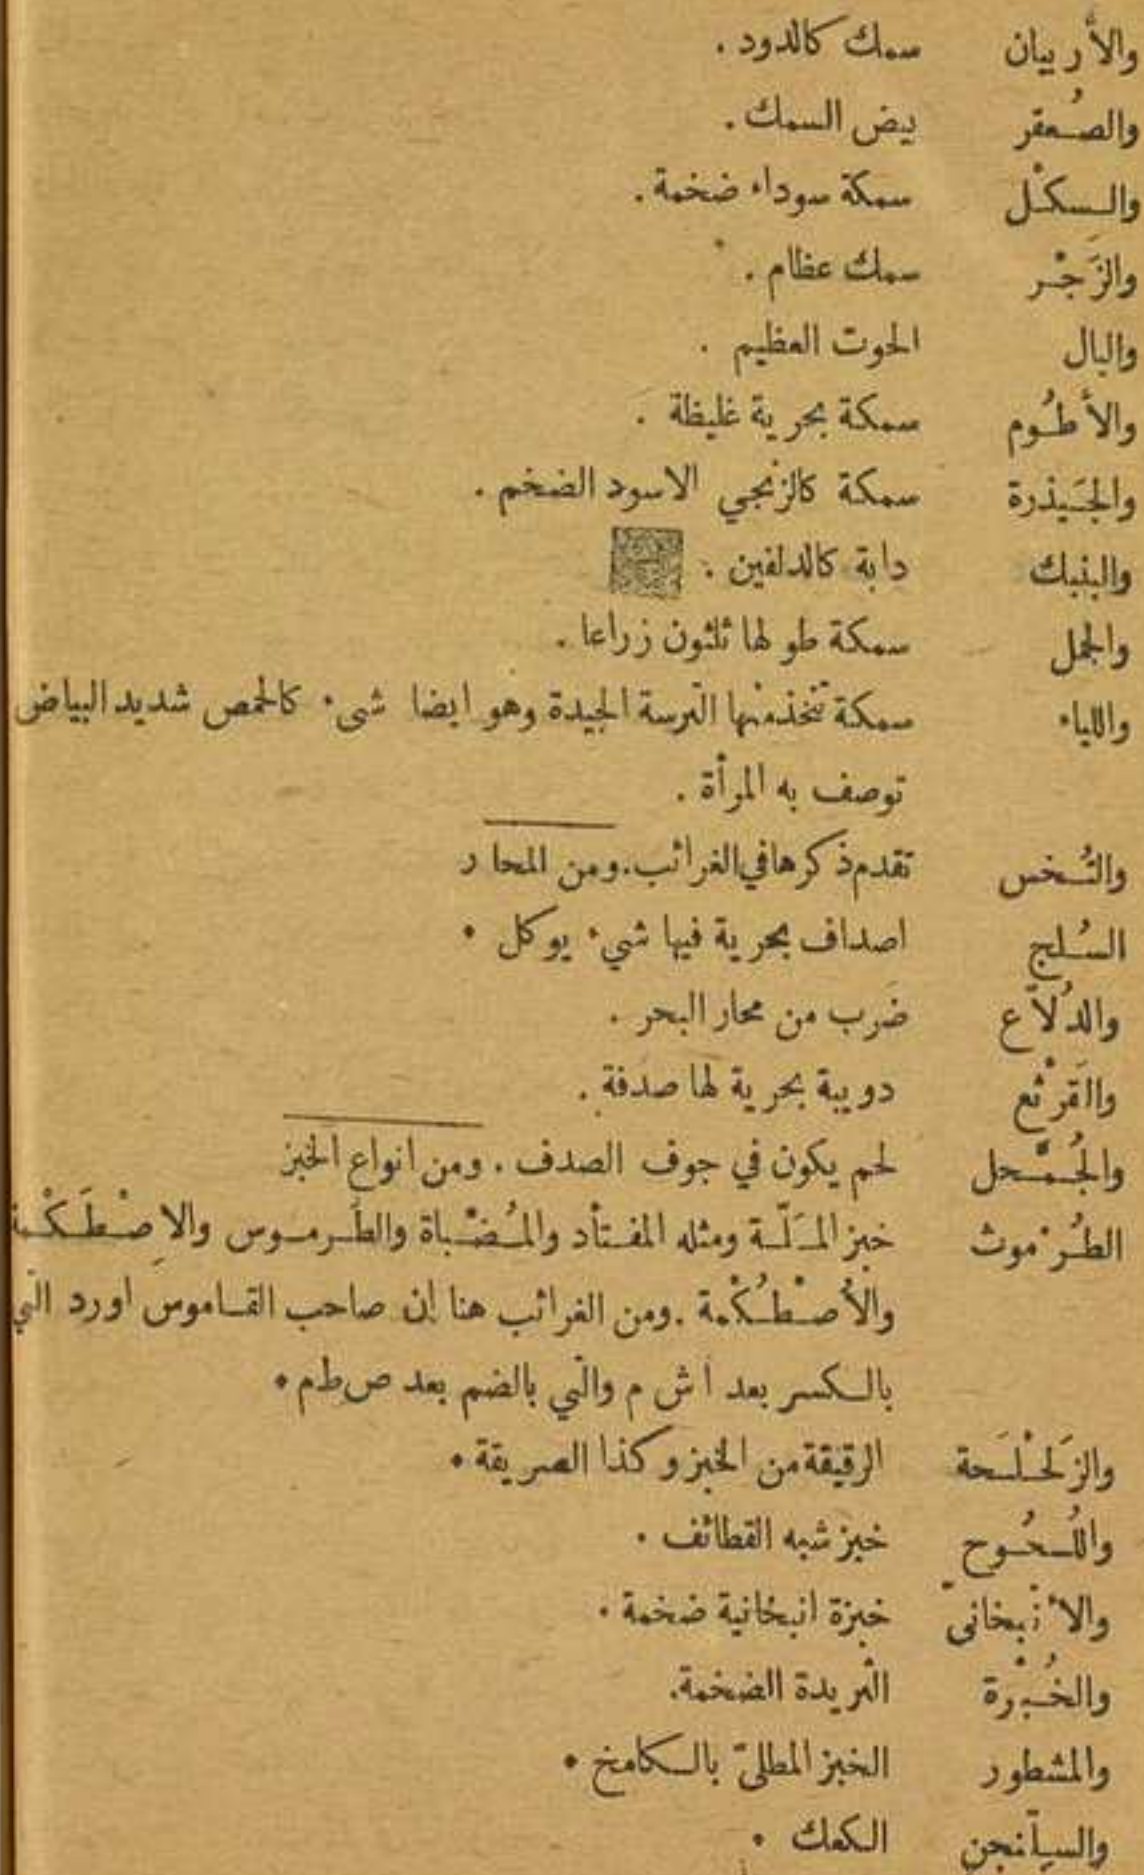 والأربيان سمك كالدود .
والصُعقر بيض السمك .
والسكْل سمكة سوداء ضخمة .
والزَجْر سمك عظام .
والبال الحوت العظيم .
والأطُوم سمكة بحرية غليظة .
والجَيذرة سمكة كالزنجي الاسود الضخم .
والبنبك دابة كالدلفين .
والجمل سمكة طولها ثلثون زراعا .
واللياء سمكة تتخذمنها الترسة الجيدة وهو ايضا شىء كالحمص شديد البياض
توصف به المرأة .
والتُخس تقدم ذكرها في الغرائب . ومن المحار
السُلج اصداف بحرية فيها شيء يوكل .
والدُلاّع ضرب من محار البحر .
والقَرْثع دويبة بحرية لها صدفة .
والجُمَّحل لحم يكون في جوف الصدف . ومن انواع الخبز
الطُرْموث خبز المَلّة ومثله المفتأد والمُضْباة والطُرموس والاِصْطَكْمة
والأُصْطُكْمة . ومن الغرائب هنا ان صاحب القاموس اورد التي
بالكسر بعد أ ش م والتي بالضم بعد ص ط م .
والزَلَحْلَحة الرقيقة من الخبز وكذا الصريقة .
واللُحُوح خبز شبه القطائف .
والأنْبخانىّ خبزة انبخانية ضخمة .
والخُبْرة الثريدة الضخمة .
والمشطور الخبز المطلىّ بالكامخ .
والسيآنجن الكعك .